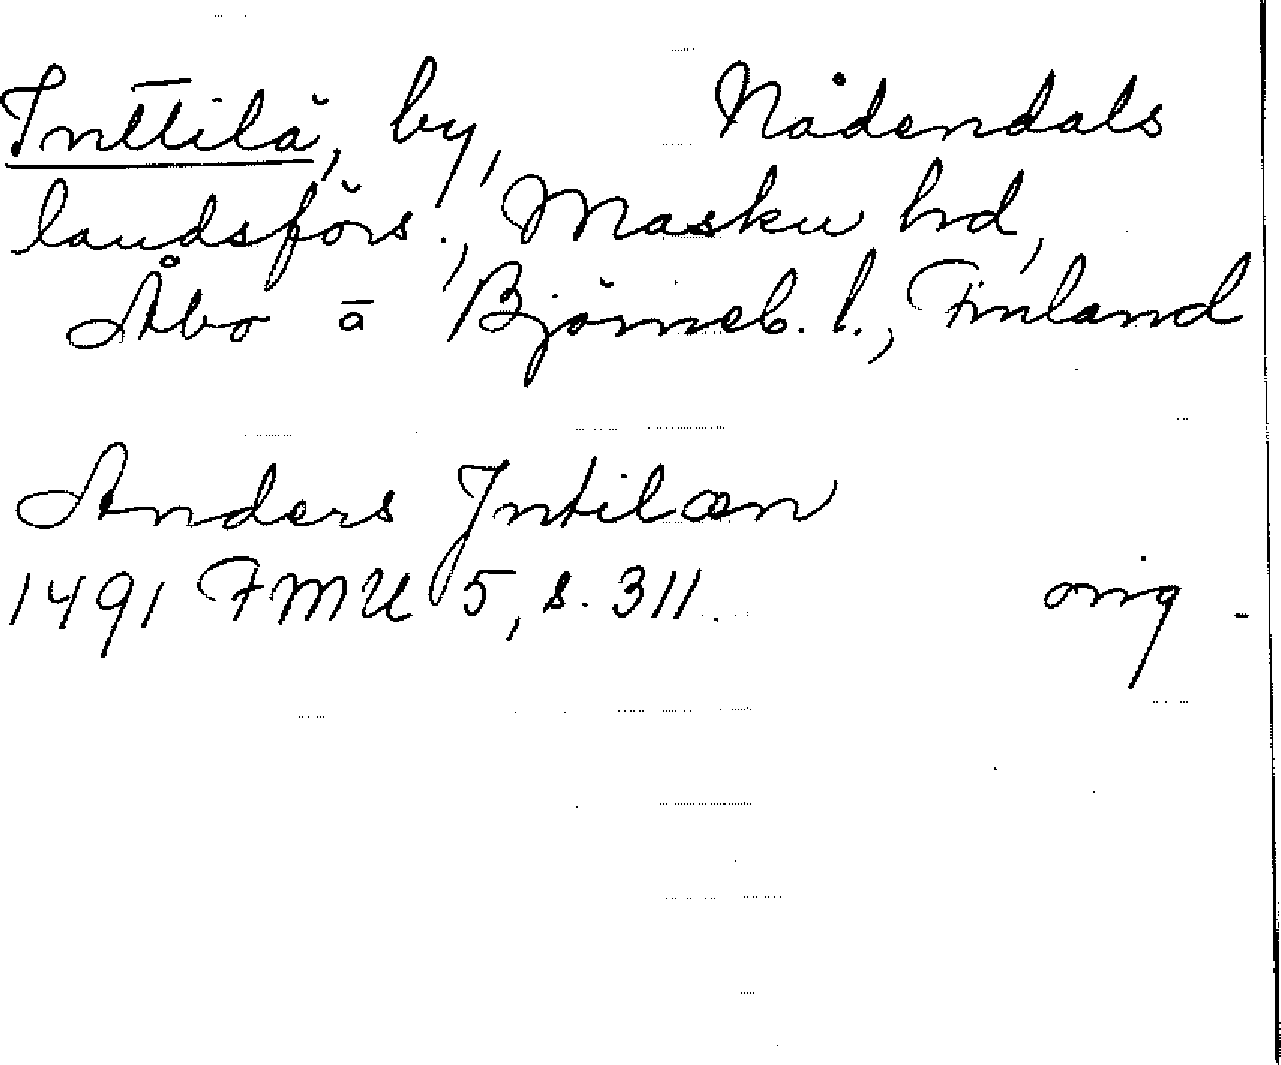 Inttilä, by, Nådendals
landsförs., Masku hd,
Åbo o Björneb. l., Finland
Anders Jntilæn
1491 FMU 5, s. 311. orig.